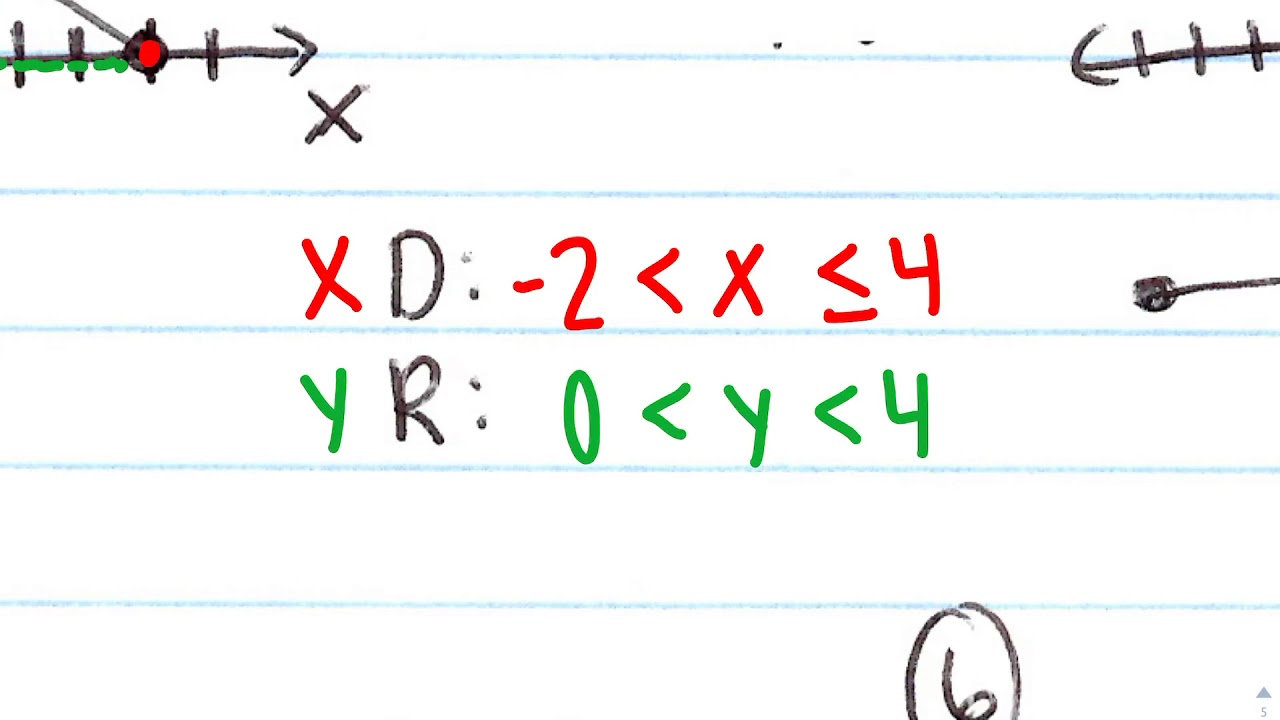 X
X D: -2 < X ≤ 4
y R: 0 < y < 4
6
5